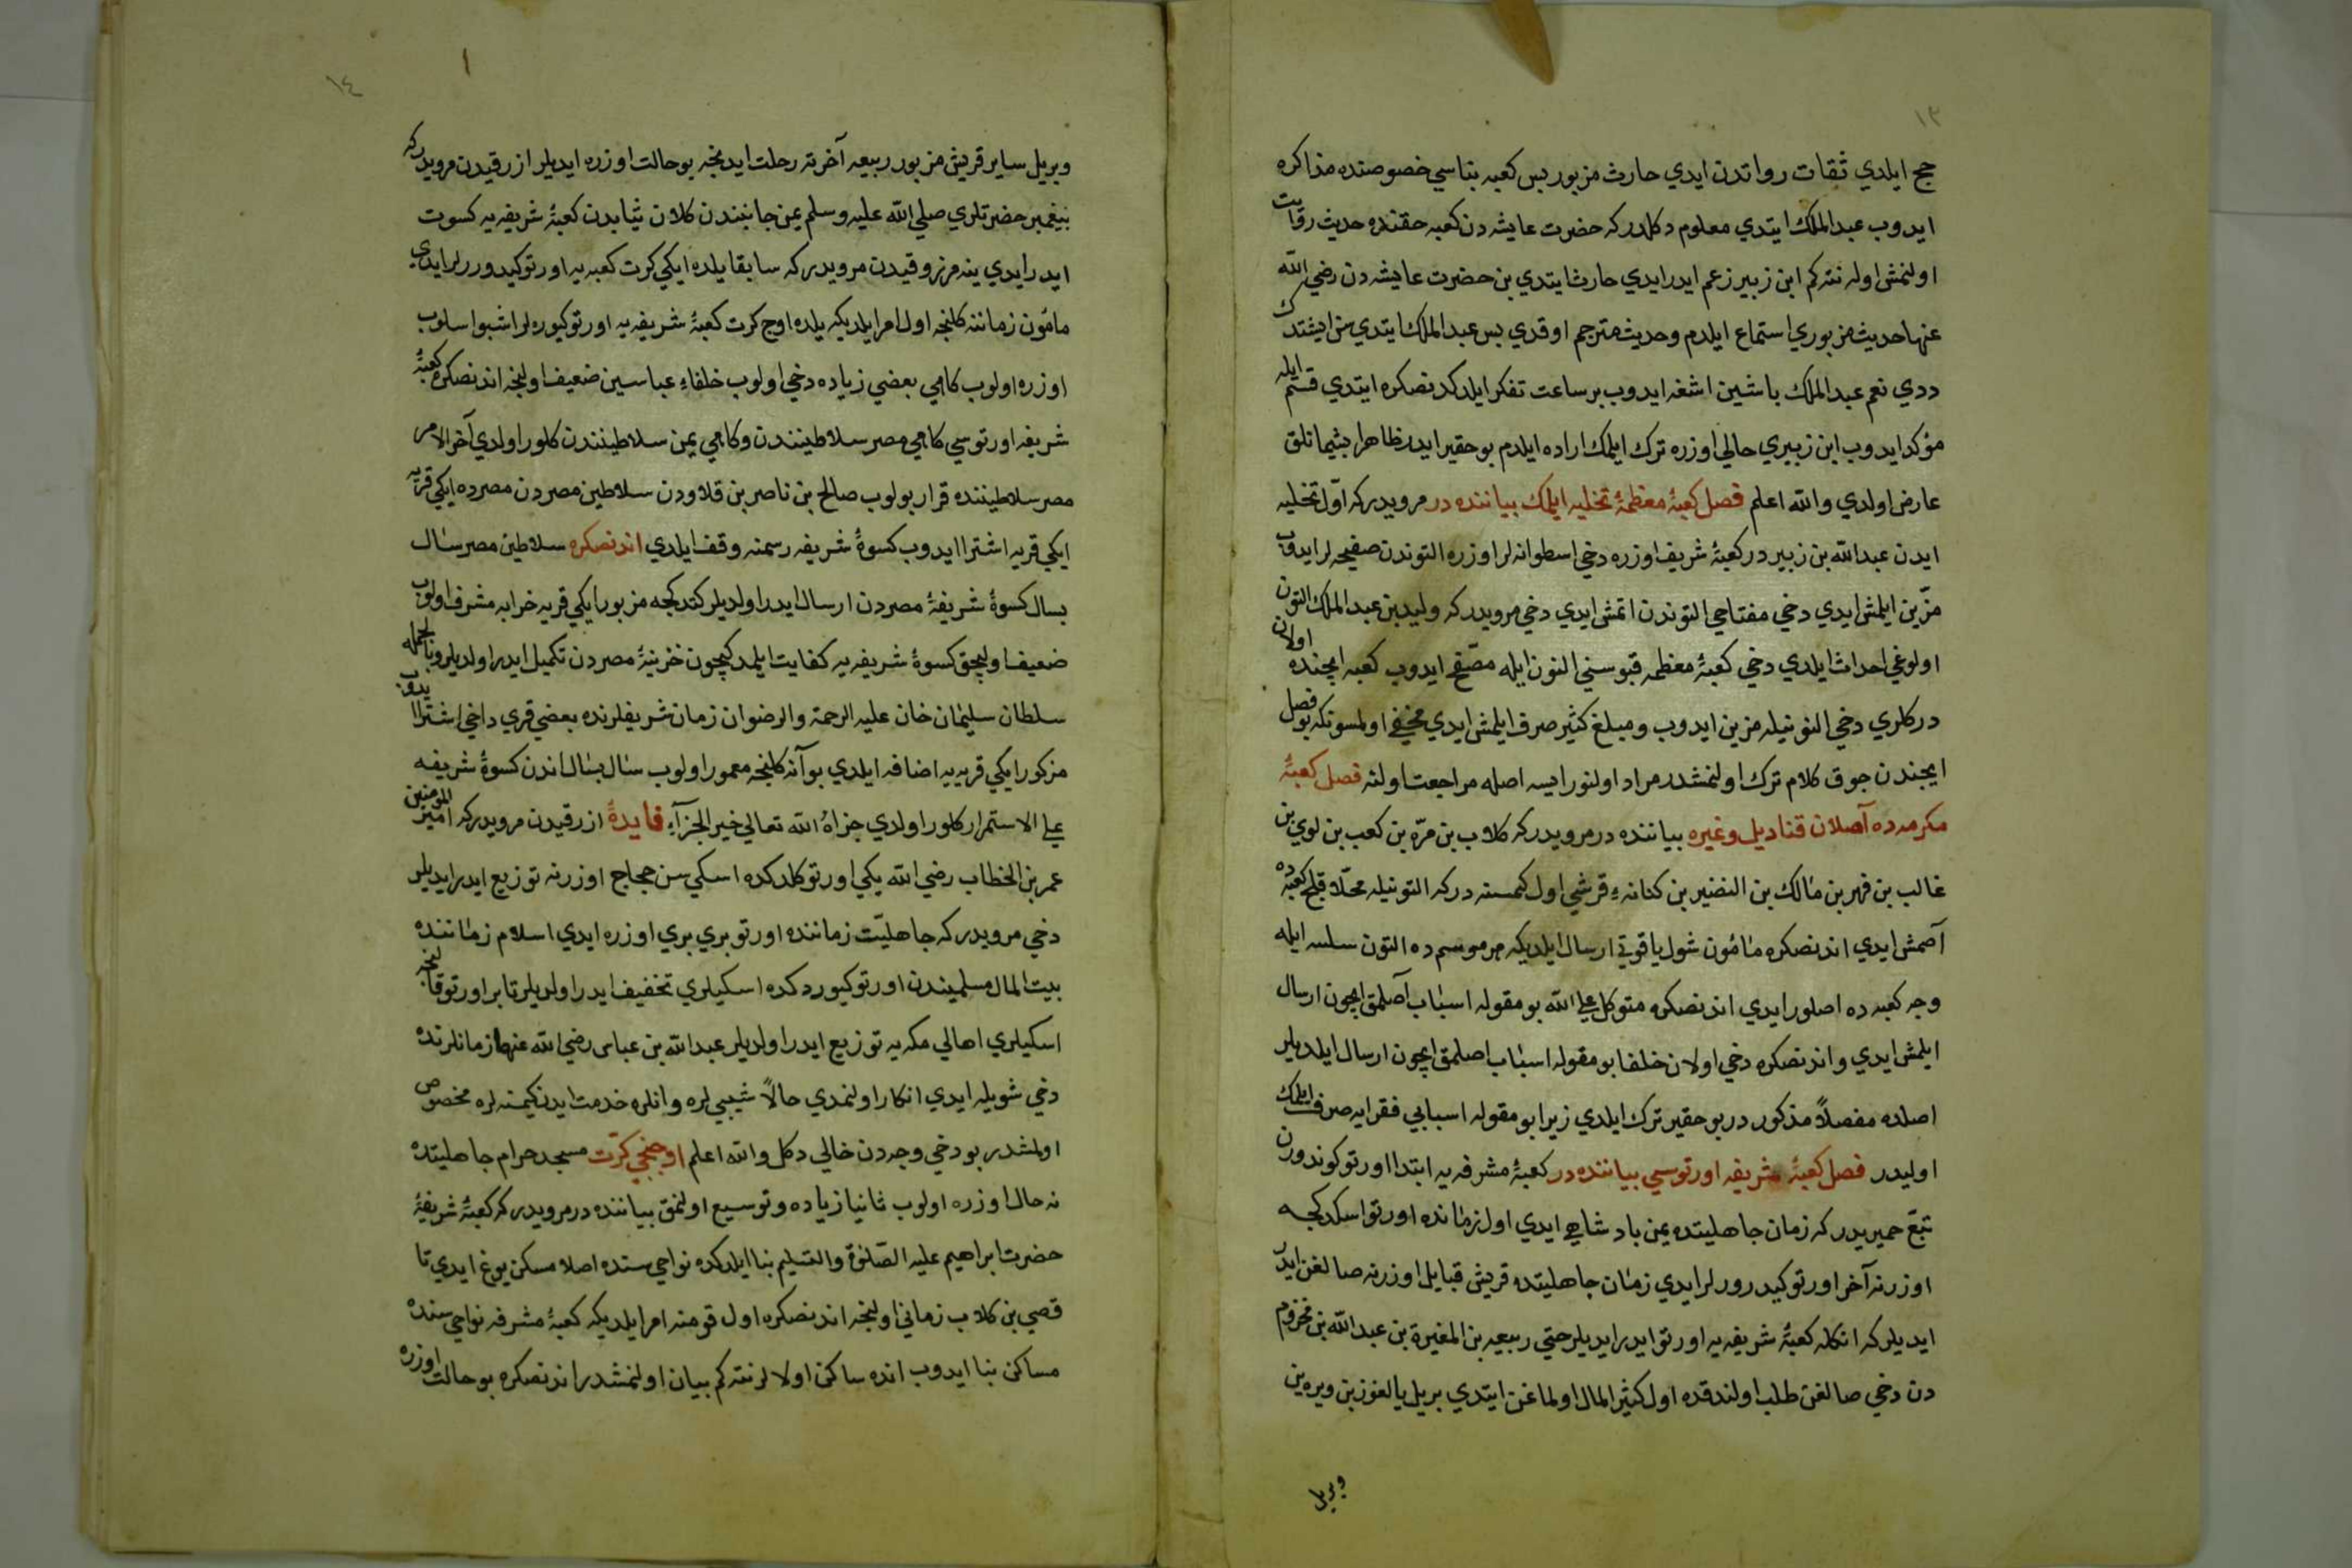 ١٣
حج ايلدي ثقات رواتدن ايدي حارث مزبور بس كعبه بناسي خصوصنده مذاكره
ايدوب عبد الملك ايتدي معلوم دكلدركه حضرت عايشه دن كعبه حقنده حديث روايت
اولنمش اوله نته كم ابن زبير زعم ايدر ايدي حارث ايتدي بن حضرت عايشه دن رضي الله
عنها حديث مزبوري استماع ايلدم وحديث مترجم اوقدي بس عبد الملك ايتدي سن ايشتدك
ددي نعم عبد الملك باشين اشغه ايدوب بر ساعت تفكر ايلدكدنصكره ايتدي قسم ايله
مؤكد ايدوب ابن زبيري حالي اوزره ترك ايلمك اراده ايلدم بو حقير ايدر ظاهرا بشيمانلق
عارض اولدي والله اعلم فصل كعبۀ معظمۀ تخليه ايلمك بياننده در مرويدركه اوّل تخليه
ايدن عبد الله بن زبير در كعبۀ شريف اوزره دخي اسطوانه لر اوزره التوندن صفيحه لر ايدوب
مزّين ايلمش ايدي دخي مفتاحي التوندن اتمش ايدي دخي مرويدركه وليد بن عبد الملك التون
اولوغي احداث ايلدي دخي كعبۀ معظمه قبوسني التون ايله مصفّح ايدوب كعبه ايچنده اولان
دركلري دخي التونيله مزين ايدوب ومبلغ كثير صرف ايلمش ايدي مخفي اولمسونكه بو فصل
ايچندن جوق كلام ترك اولنمشدر مراد اولنور ايسه اصله مراجعت اولنه فصل كعبۀ
مكرمه ده آصلان قناديل وغيره بياننده در مرويدركه كلاب بن مرّه بن كعب بن لوي بن
غالب بن فهر بن مالك بن النضير بن كنانه ءِ قرشي اول كمسنه دركه التونيله محلّا قلج كعبه ده
آصمش ايدي اندنصكره مأمون شول ياقوتي ارسال ايلديكه هر موسم ده التون سلسه ايله
وجه كعبه ده اصلور ايدي اندنصكره متوكل علي الله بو مقوله اسباب آصلمق ايچون ارسال
ايلمش ايدي واندنصكره دخي اولان خلفا بو مقوله اسباب اصلمق ايچون ارسال ايلديلر
اصلده مفصلاً مذكور در بو حقير ترك ايلدي زيرا بو مقوله اسبابي فقرايه صرف ايلمك
اوليدر فصل كعبۀ شريفه اورتوسي بياننده در كعبۀ مشرفه يه ابتدا اورتو كوندورن
تبّع حميريدر كه زمان جاهليتده يمن بادشاهي ايدي اول زمانده اورتو اسكدكجه
اوزرنه آخر اورتو كيدرورلر ايدي زمان جاهليتده قريش قبايل اوزرنه صالغن ايدر
ايديلركه انكله كعبۀ شريفه يه اورتو ايدر ايديلر حتي ربيعه بن المغيرة بن عبد الله بن مخزوم
دن دخي صالغن طلب اولندقده اول كثير المال اولماغن ايتدي بر يل يالغوز بن ويره ين
ويريل
١٤
ويريل ساير قريش مزبور ربيعه آخرته رحلت ايدنجه بو حالت اوزره ايديلر ازرقيدن مرويدركه
پيغمبر حضرتلري صلي الله عليه وسلم يمن جانبندن كلان ثيابدن كعبۀ شريفه يه كسوت
ايدر ايدي ينه مرزوقيدن مرويدركه سابقا يلده ايكي كرت كعبه يه اورتو كيدوررلر ايدي
مأمون زماننه كلنجه اول امر ايلديكه يلده اوج كرت كعبۀ شريفه يه اورتو كيوره لر اشبو اسلوب
اوزره اولوب كاهي بعضي زياده دخي اولوب خلفاءِ عباسين ضعيف اولنجه اندنصكره كعبۀ
شريفه اورتوسي كاهي مصر سلاطينندن وكاهي يمن سلاطينندن كلور اولدي آخر الامر
مصر سلاطيننده قرار بولوب صالح بن ناصر بن قلاودن سلاطين مصردن مصرده ايكي قريه
ايكي قريه اشترا ايدوب كسوۀ شريفه رسمنه وقف ايلدي اندنصكره سلاطين مصر سال
بسال كسوۀ شريفۀ مصردن ارسال ايدر اولديلر كتدكجه مزبور ايكي قريه خرابه مشرف اولوب
ضعيف اوليجق كسوۀ شريفه يه كفايت ايلمدكيچون خزينۀ مصردن تكميل ايدر اولديلر وبالجمله
سلطان سليمان خان عليه الرحمة والرضوان زمان شريفلرنده بعضي قري داخي اشترا ايدوب
مزكور ايكي قريه يه اضافه ايلدي بو آنه كلنجه معمور اولوب سال بسال اندن كسوۀ شريفه
علي الاستمرار كلور اولدي جزاهُ الله تعالي خير الجزآءِ فايدۀ ازرقيدن مرويدركه امير المومنين
عمر بن الخطاب رضي الله يكي اورتو كلدكده اسكي سن حجاج اوزرنه توزيع ايدر ايديلر
دخي مرويدركه جاهليّت زماننده اورتو بري بري اوزره ايدي اسلام زماننده
بيت المال مسلميندن اورتو كيوردكده اسكيلري تخفيف ايدر اولديلر تا بر اورتو قالنجه
اسكيلري اهالي مكه يه توزيع ايدر اولديلر عبد الله بن عباس رضي الله عنهما زمانلرنده
دخي شويله ايدي انكار اولنمدي حالاً شيبي لره وانلره خدمت ايدن كيمسنه لره مخصوص
اولمشدر بو دخي وجه دن خالي دكل والله اعلم اوجنجي كرّت مسجد حرام جاهليتده
نه حال اوزره اولوب ثانيا زياده وتوسيع اولنمق بياننده در مرويدركه كعبۀ شريفۀ
حضرت ابراهيم عليه الصّلوة والتسليم بنا ايلدكده نواحي سنده اصلا مسكن يوغ ايدي تا
قصي بن كلاب زماني اولنجه اندنصكره اول قومنه امر ايلديكه كعبۀ مشرفه نواحي سنده
مساكن بنا ايدوب انده ساكن اولالر نته كم بيان اولنمشدر اندنصكره بو حالت اوزره